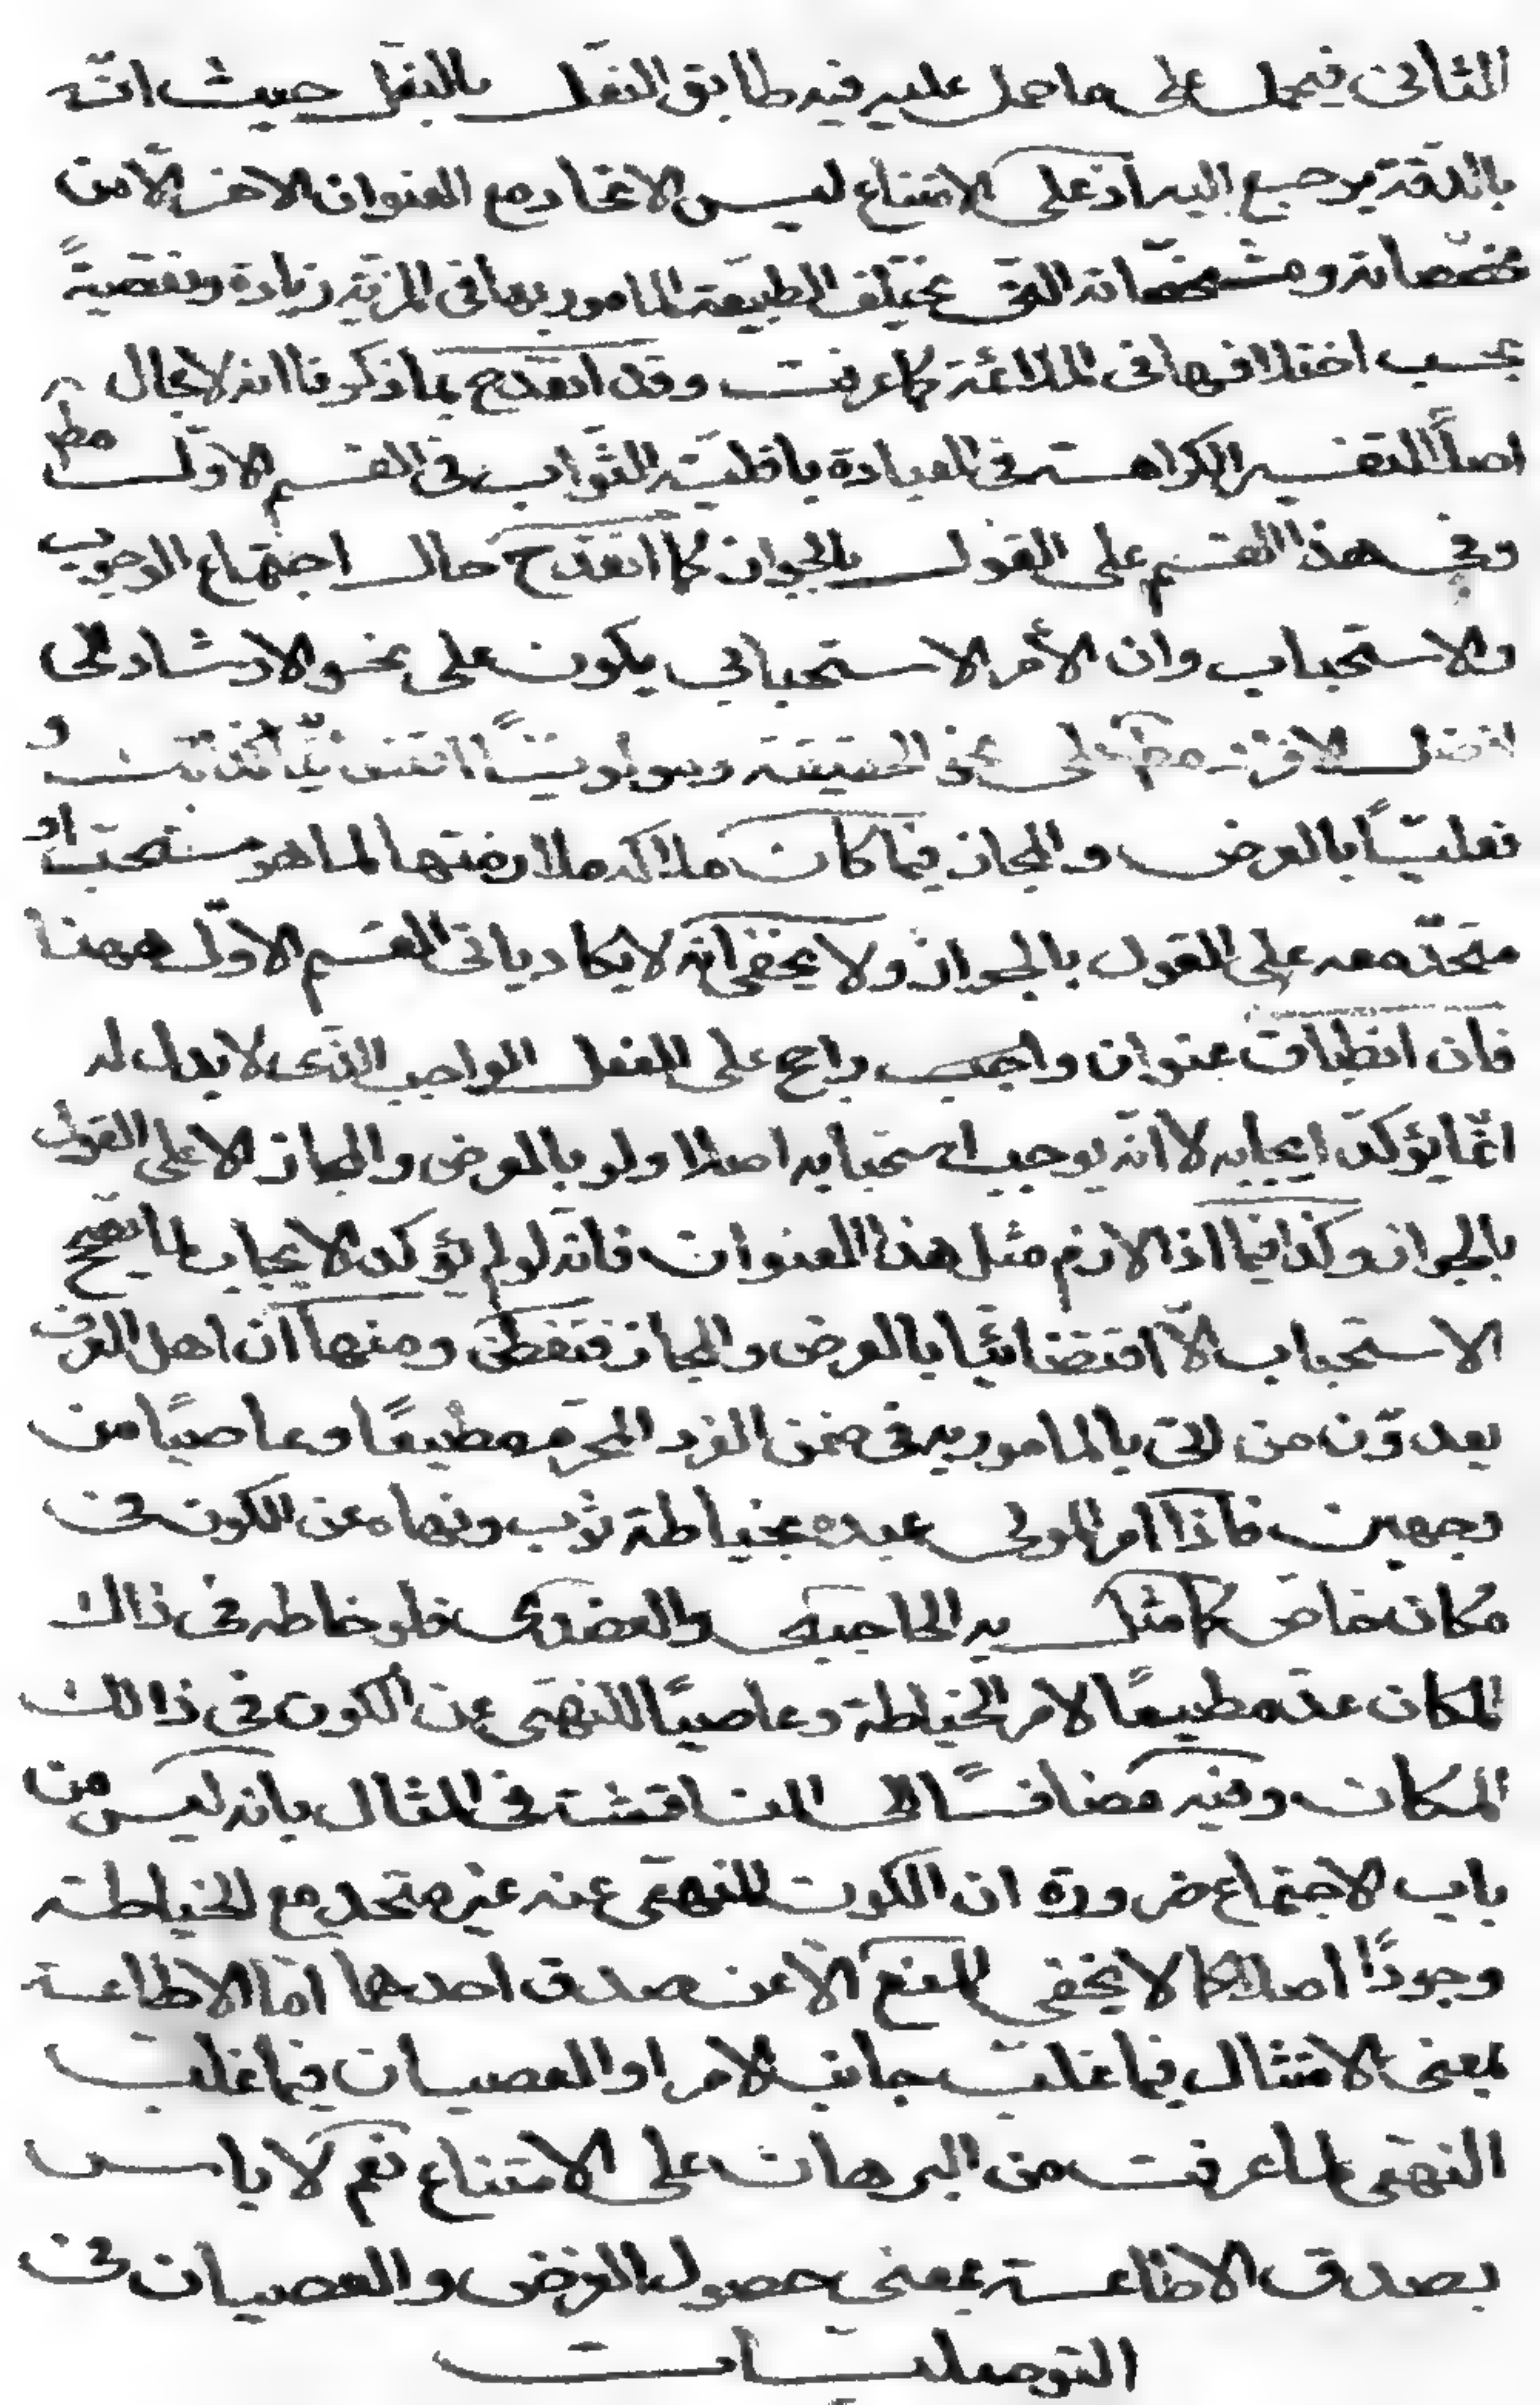 الثانى فيحمل على ما حمل عليه فيه طابق النعل بالنعل حيث انّه
بالدّقة يرجع اليه اذ على الامتناع ليس الاتحاد مع العنوان الاخر الّا من
مخصّصاته و مشخصّاته التى تختلف الطبيعة المامور بها فى المزيّه زيادة ونقصيةً
بحسب اختلافها فى الملائمة كما عرفت وقد انقدح بما ذكرنا انه لا مجال
اصلاً لتفسير الكراهة فى العبادة باقليّة الثّواب فى القسم الاوّل مط
وفى هذا القسم على القول بالجواز كما انقدح حال اجتماع الوجوب
والاستحباب وان الأمر الاستحبابى يكون على نحو الارشاد الى
افضل الافراد مط على نحو الحقيقة ومولويّاً اقتضائيّاً كذلك و
فعليّاً بالعرض و المجاز فيما كان ملاكه ملازمتها لما هو مستحبّ او
متحدّ معه على القول بالجواز ولا يخفى انّه لا يكاد ياتى القسم الاوّل ههنا
فان انطباق عنوان واجب راجح على الفعل الواجب الذّى لا بدل له
انّما يؤكدّ ايجابه لا انّه يوجب استحبابه اصلا ولو بالعرض والمجاز الا على القول
بالجواز وكذا فيما اذا لازم مثل هذا العنوان فانّه لو لم يؤكد الايجاب لما يصحح
الاستحباب الّا اقتضائيّا بالعرض والمجاز فتفطّن ومنها انّ اهل العرف
يعدوّن من اتى بالمامور به فى ضمن الفرد المحرّم مطيعًا وعاصيًا من
وجهين فاذا امر المولى عبده بخياطة ثوب ونهاه عن الكون فى
مكان خاص كما مثل به الحاجبى والعضدى فلو خاطه فى ذاك
المكان عدّ مطيعًا لامر الخياطة وعاصيًا للنهى عن الكون فى ذالك
المكان وفيه مضافًا الى المناقشة فى المثال بانه ليس من
باب الاجتماع ضرورة ان الكون المنهىّ عنه غير متحد مع الخياطة
وجودًا اصلا كما لا يخفى المنع الّا عن صدق احدهما امّا الاطاعة
بمعنى الامتثال فيما غلب جانب الامر او العصيان فيما غلب
النهى لما عرفت من البرهان على الامتناع نعم لا باس
بصدق الاطاعة بمعنى حصول الغرض والعصيان فى
التوصليات